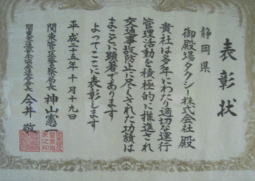 表彰状
静岡県
御殿場タクシー株式会社 殿
貴社は多年にわたり適切な運行
管理活動を積極的に推進され
交通事故防止に尽くされた功績は
まことに顕著であります
よってここに表彰します
平成二十五年十月十九日
関東運輸局長 神山憲
今井敬